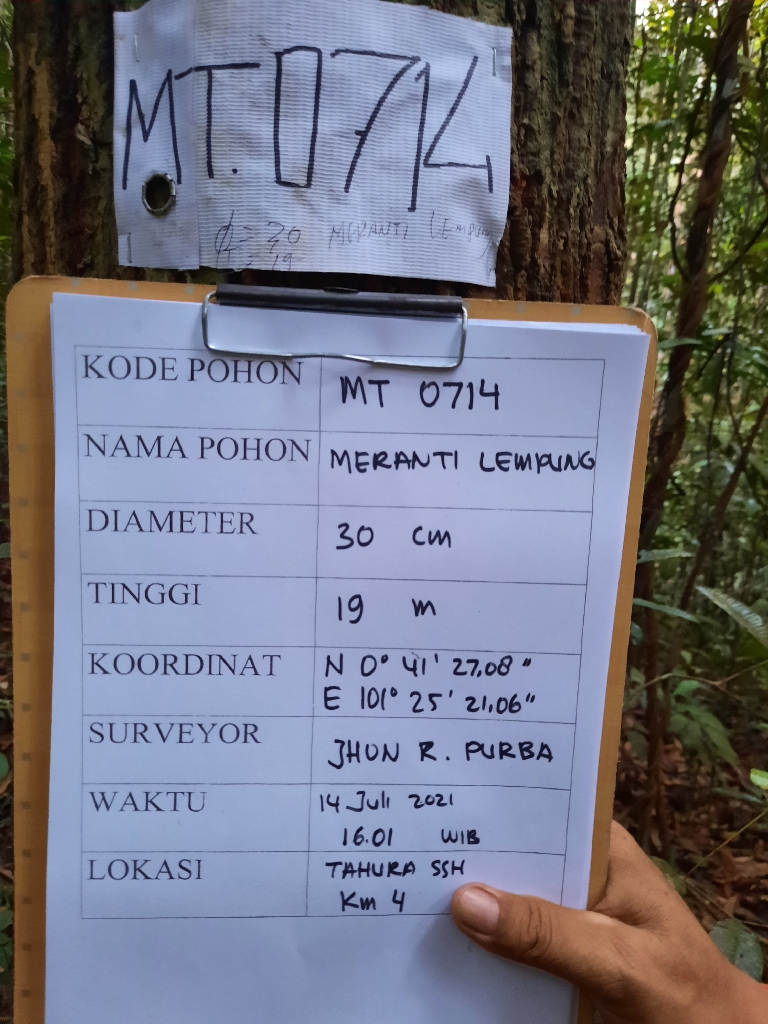 MT. 0714
Ø = 30 MERANTI LEMPUNG
= 19
KODE POHON MT 0714
NAMA POHON MERANTI LEMPUNG
DIAMETER 30 cm
TINGGI 19 m
KOORDINAT N 0° 41' 27,08 "
E 101° 25' 21,06"
SURVEYOR JHON R. PURBA
WAKTU 14 Juli 2021
16.01 WIB
LOKASI TAHURA SSH
Km 4